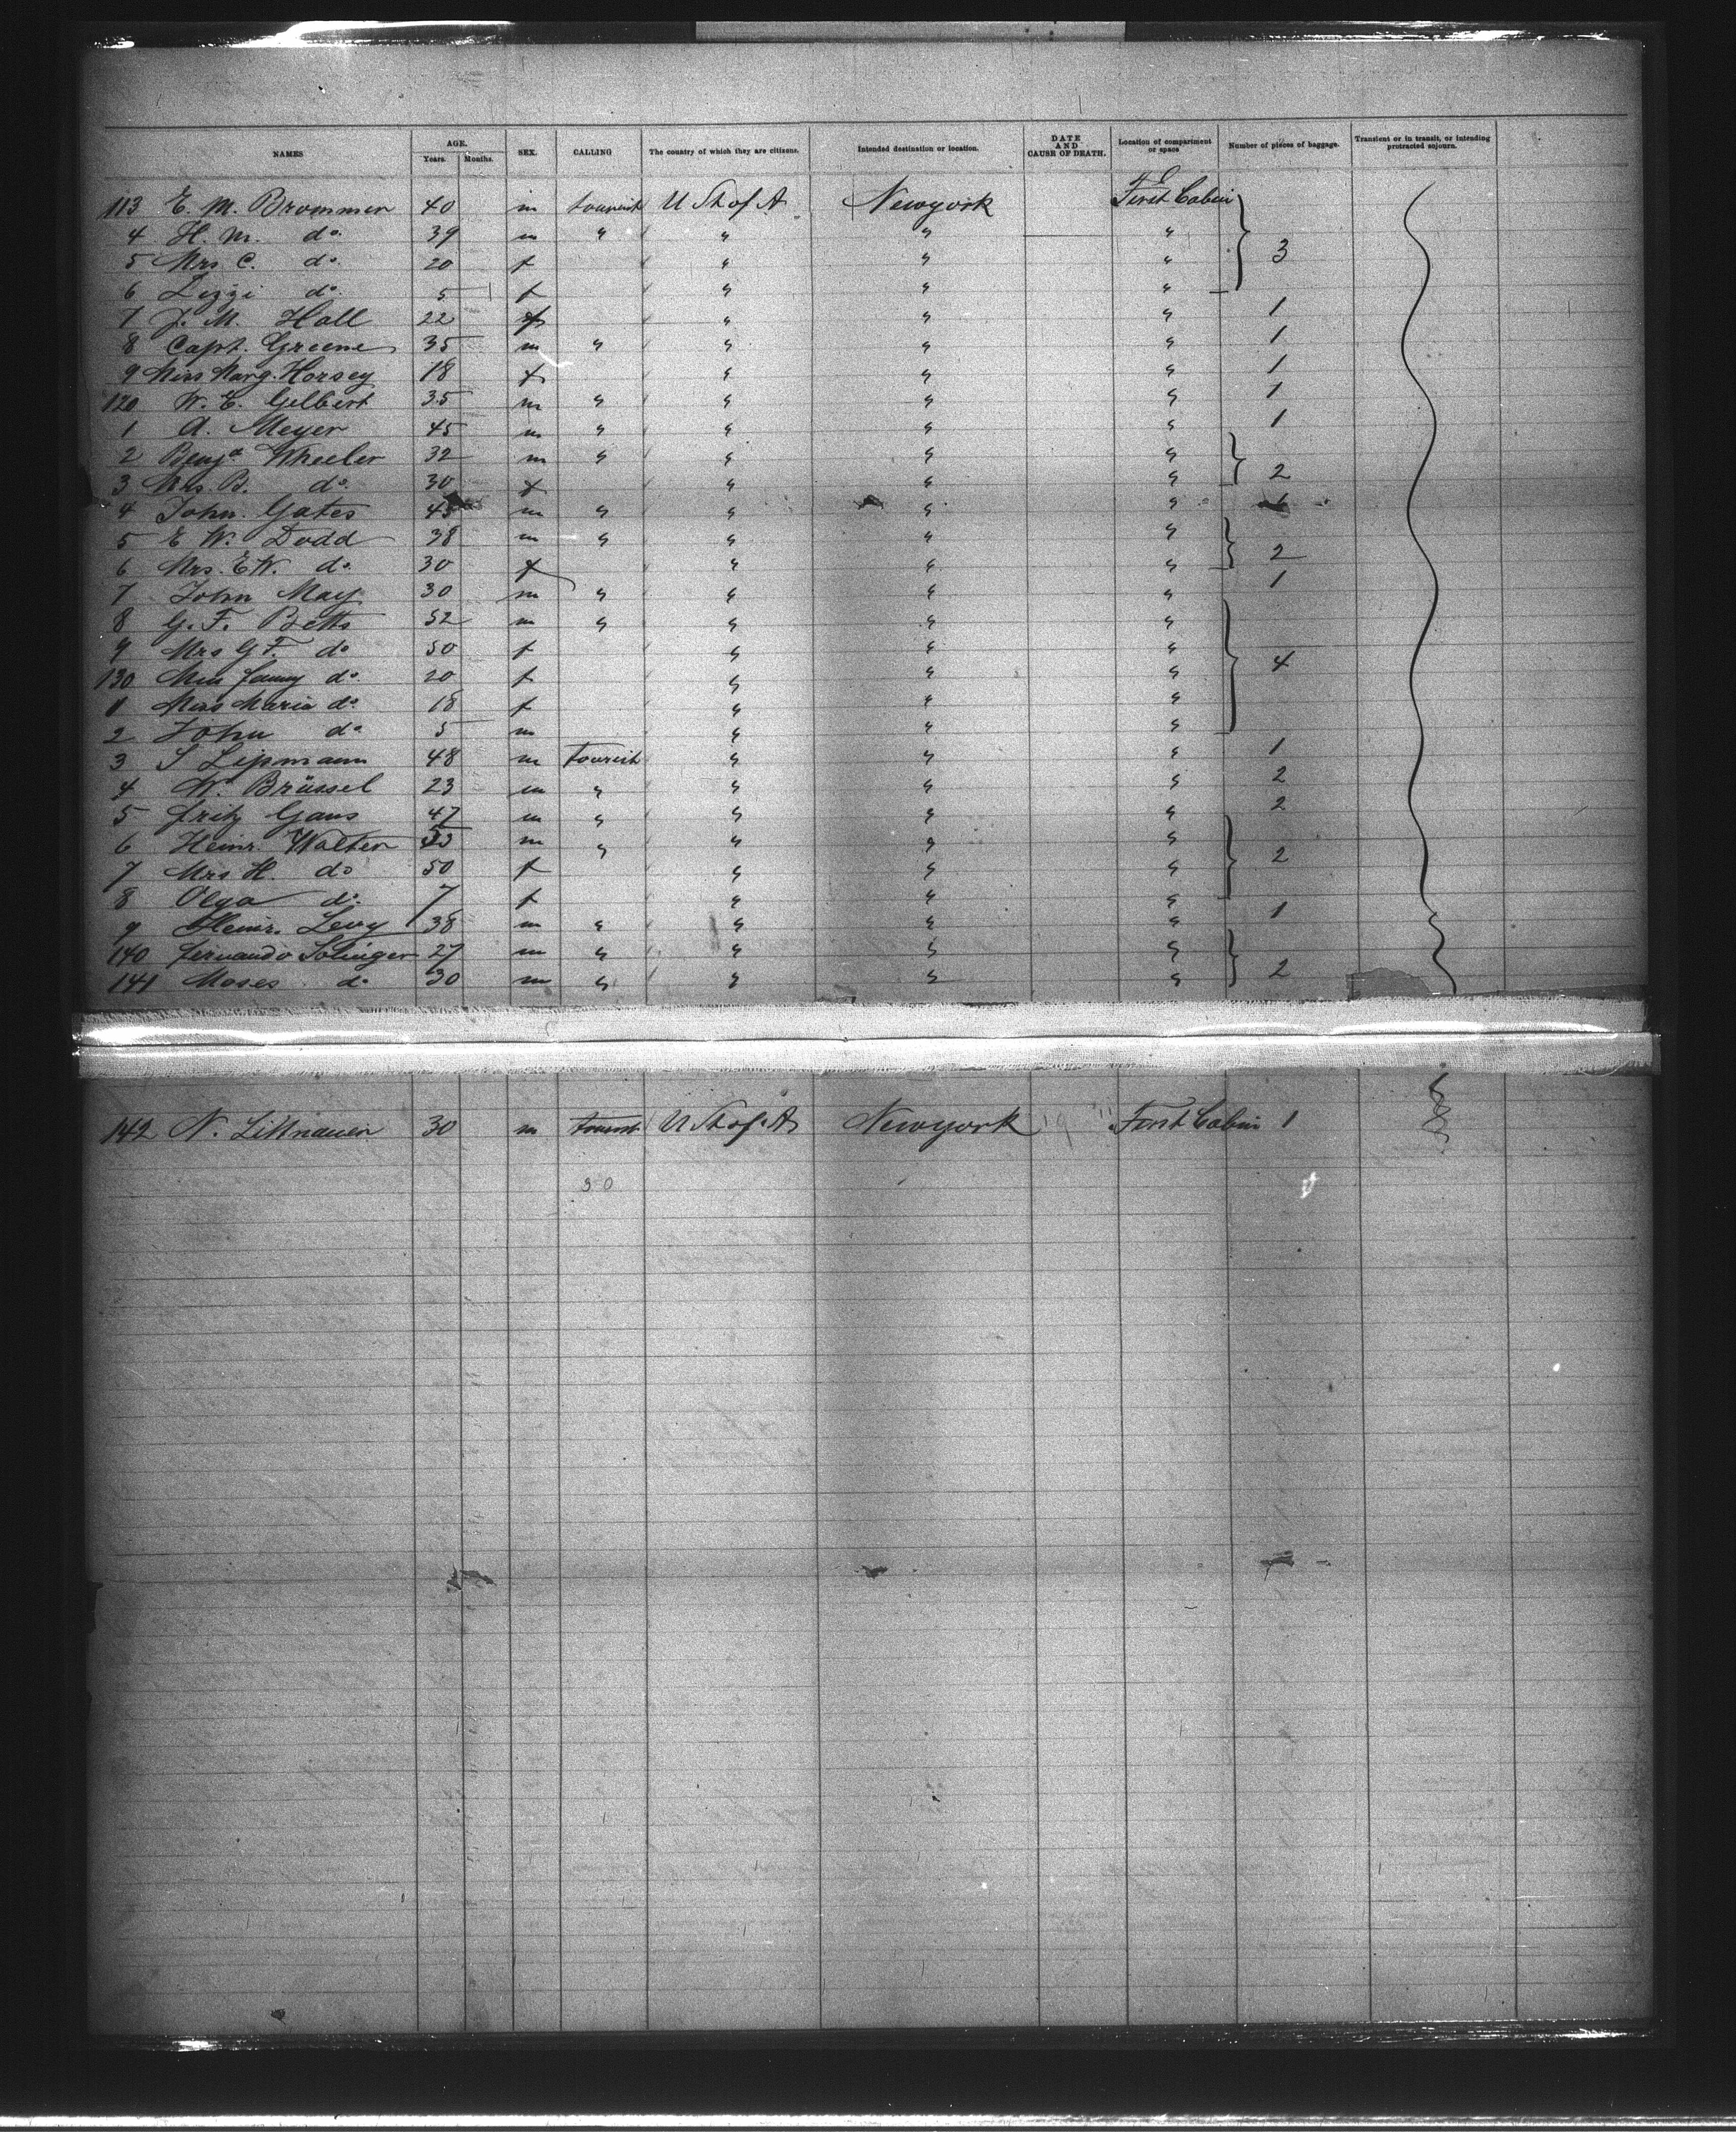 NAMES AGE. Years. Months. SEX. CALLING The country of which they are citizens. Intended destination or location. DATE AND CAUSE OF DEATH. Location of compartment or space Number of pieces of baggage. Transient or in transit, or intending protracted sojourn.
113 E. M. Brommer 40 m tourist U St of A Newyork First Cabin
4 H. M. do. 39 m " " " "
5 Mrs C. do. 20 f " " " 3
6 Lizzi do. 5 f " " "
7 J. M. Hall 22 f " " " 1
8 Capt. Greene 35 m " " " " 1
9 Miss Marg. Horsey 18 f " " " 1
120 W. E. Gilbert 35 m " " " " 1
1 A. Meyer 45 m " " " " 1
2 Benja Wheeler 32 m " " " "
3 Mrs B. do. 30 f " " " 2
4 John Gates 45 m " " " "
5 E W. Dodd 38 m " " " "
6 Mrs. E W. do. 30 f " " " 2
7 John May 30 m " " " " 1
8 G. F. Betts 52 m " " " "
9 Mrs G F. do 50 f " " "
130 Miss Fanny do. 20 f " " " 4
1 Miss Maria do. 18 f " " "
2 John do 5 m " " "
3 S Lipmann 48 m tourist " " " 1
4 W. Brüssel 23 m " " " " 2
5 Fritz Gans 47 m " " " " 2
6 Heinr. Walter m " " " "
7 Mrs H. do 50 f " " " 2
8 Olga do. 7 f " " "
9 Heinr. Levy 38 m " " " " 1
140 Fernando Solinger 27 m " " " "
141 Moses do 30 m " " " " 2
142 N. Littnauer 30 m tourist U St of A Newyork First Cabin 1
30